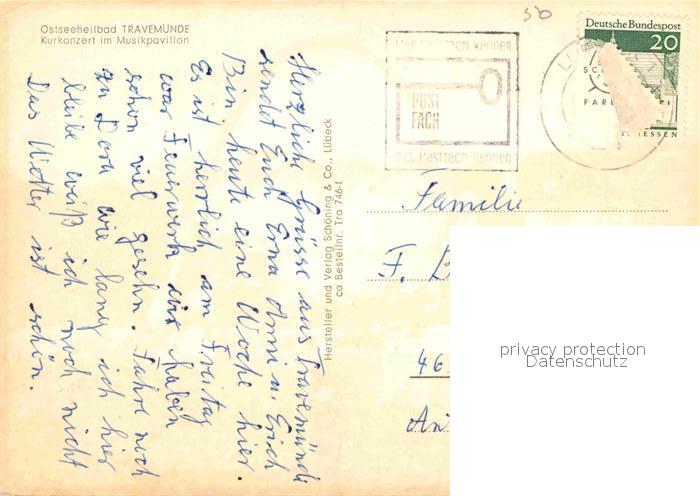 Ostseeheilbad TRAVEMÜNDE
Kurkonzert im Musikpavillon
Herzliche Grüsse aus Travemünde
sendet Euch Erna Anni u. Erich
Bin heute eine Woche hier.
Es ist herrlich am Freitag
war Feuerwerk wir haben
schon viel gesehn. Fahre noch
zu Dora wie lang ich hier
bleibe weiß ich noch nicht
Das Wetter ist schön.
Hersteller und Verlag Schöning & Co., Lübeck
ca Bestellnr. Tra 746-f
50
Das Postfach kennen
POST
FACH
das Postfach nennen
Deutsche Bundespost
20
ESSEN
Familie
F.
46
privacy protection
Datenschutz